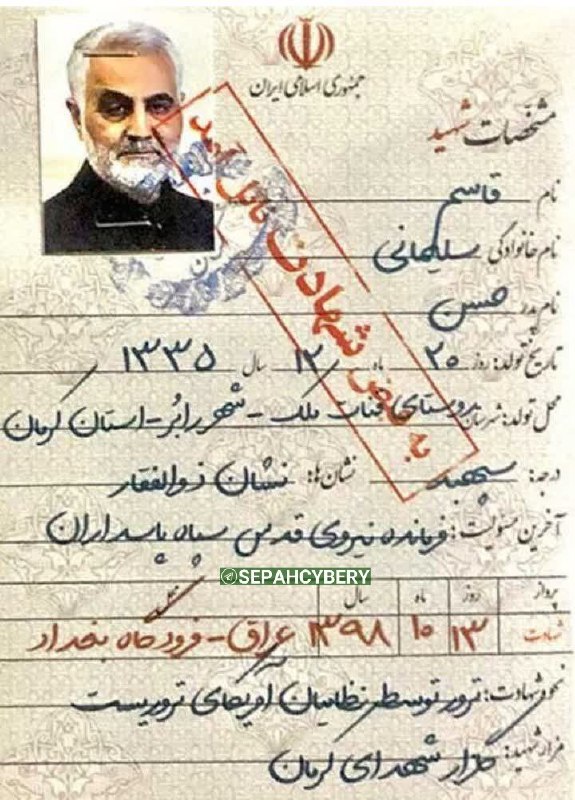 جمهوری اسلامی ایران
مشخصات شهید
نام قاسم
نام خانوادگی سلیمانی
نام پدر حسن
تاریخ تولد: روز ۲۰ ماه ۱۲ سال ۱۳۳۵
محل تولد: شهرستان روستای قنات ملک - شهر رابُر - استان کرمان
درجه: سپهبد نشان ها: نشان ذوالفقار
آخرین مسئولیت: فرمانده نیروی قدس سپاه پاسداران
@SEPAHCYBERY
پرواز روز ماه سال محل
شهادت ۱۳ ۱۰ ۱۳۹۸ عراق - فرودگاه بغداد
نحوه شهادت: ترور توسط نظامیان آمریکای تروریست
مزار شهید: گلزار شهدای کرمان
به فیض شهادت نائل آمد